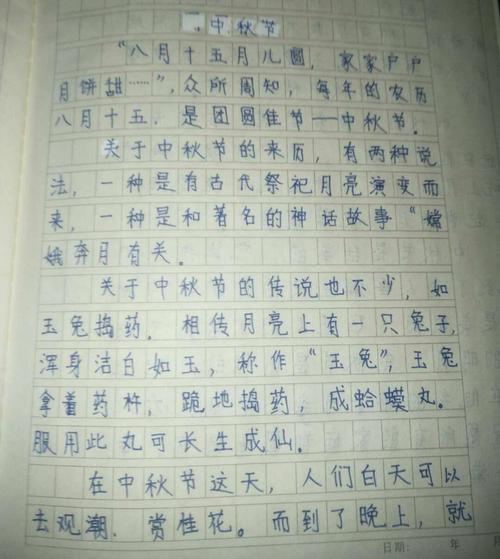 中秋节
“八月十五月儿圆，家家户户
月饼甜……”，众所周知，每年的农历
八月十五．是团圆佳节——中秋节．
关于中秋节的来历，有两种说
法，一种是有古代祭祀月亮演变而
来，一种是和著名的神话故事“嫦
娥奔月有关。
关于中秋节的传说也不少，如
玉兔捣药．相传月亮上有一只兔子，
浑身洁白如玉，称作“玉兔”，玉兔
拿着药杵，跪地捣药，成蛤蟆丸。
服用此丸可长生成仙．
在中秋节这天，人们白天可以
去观潮．赏桂花。而到了晚上，就
日期： 年